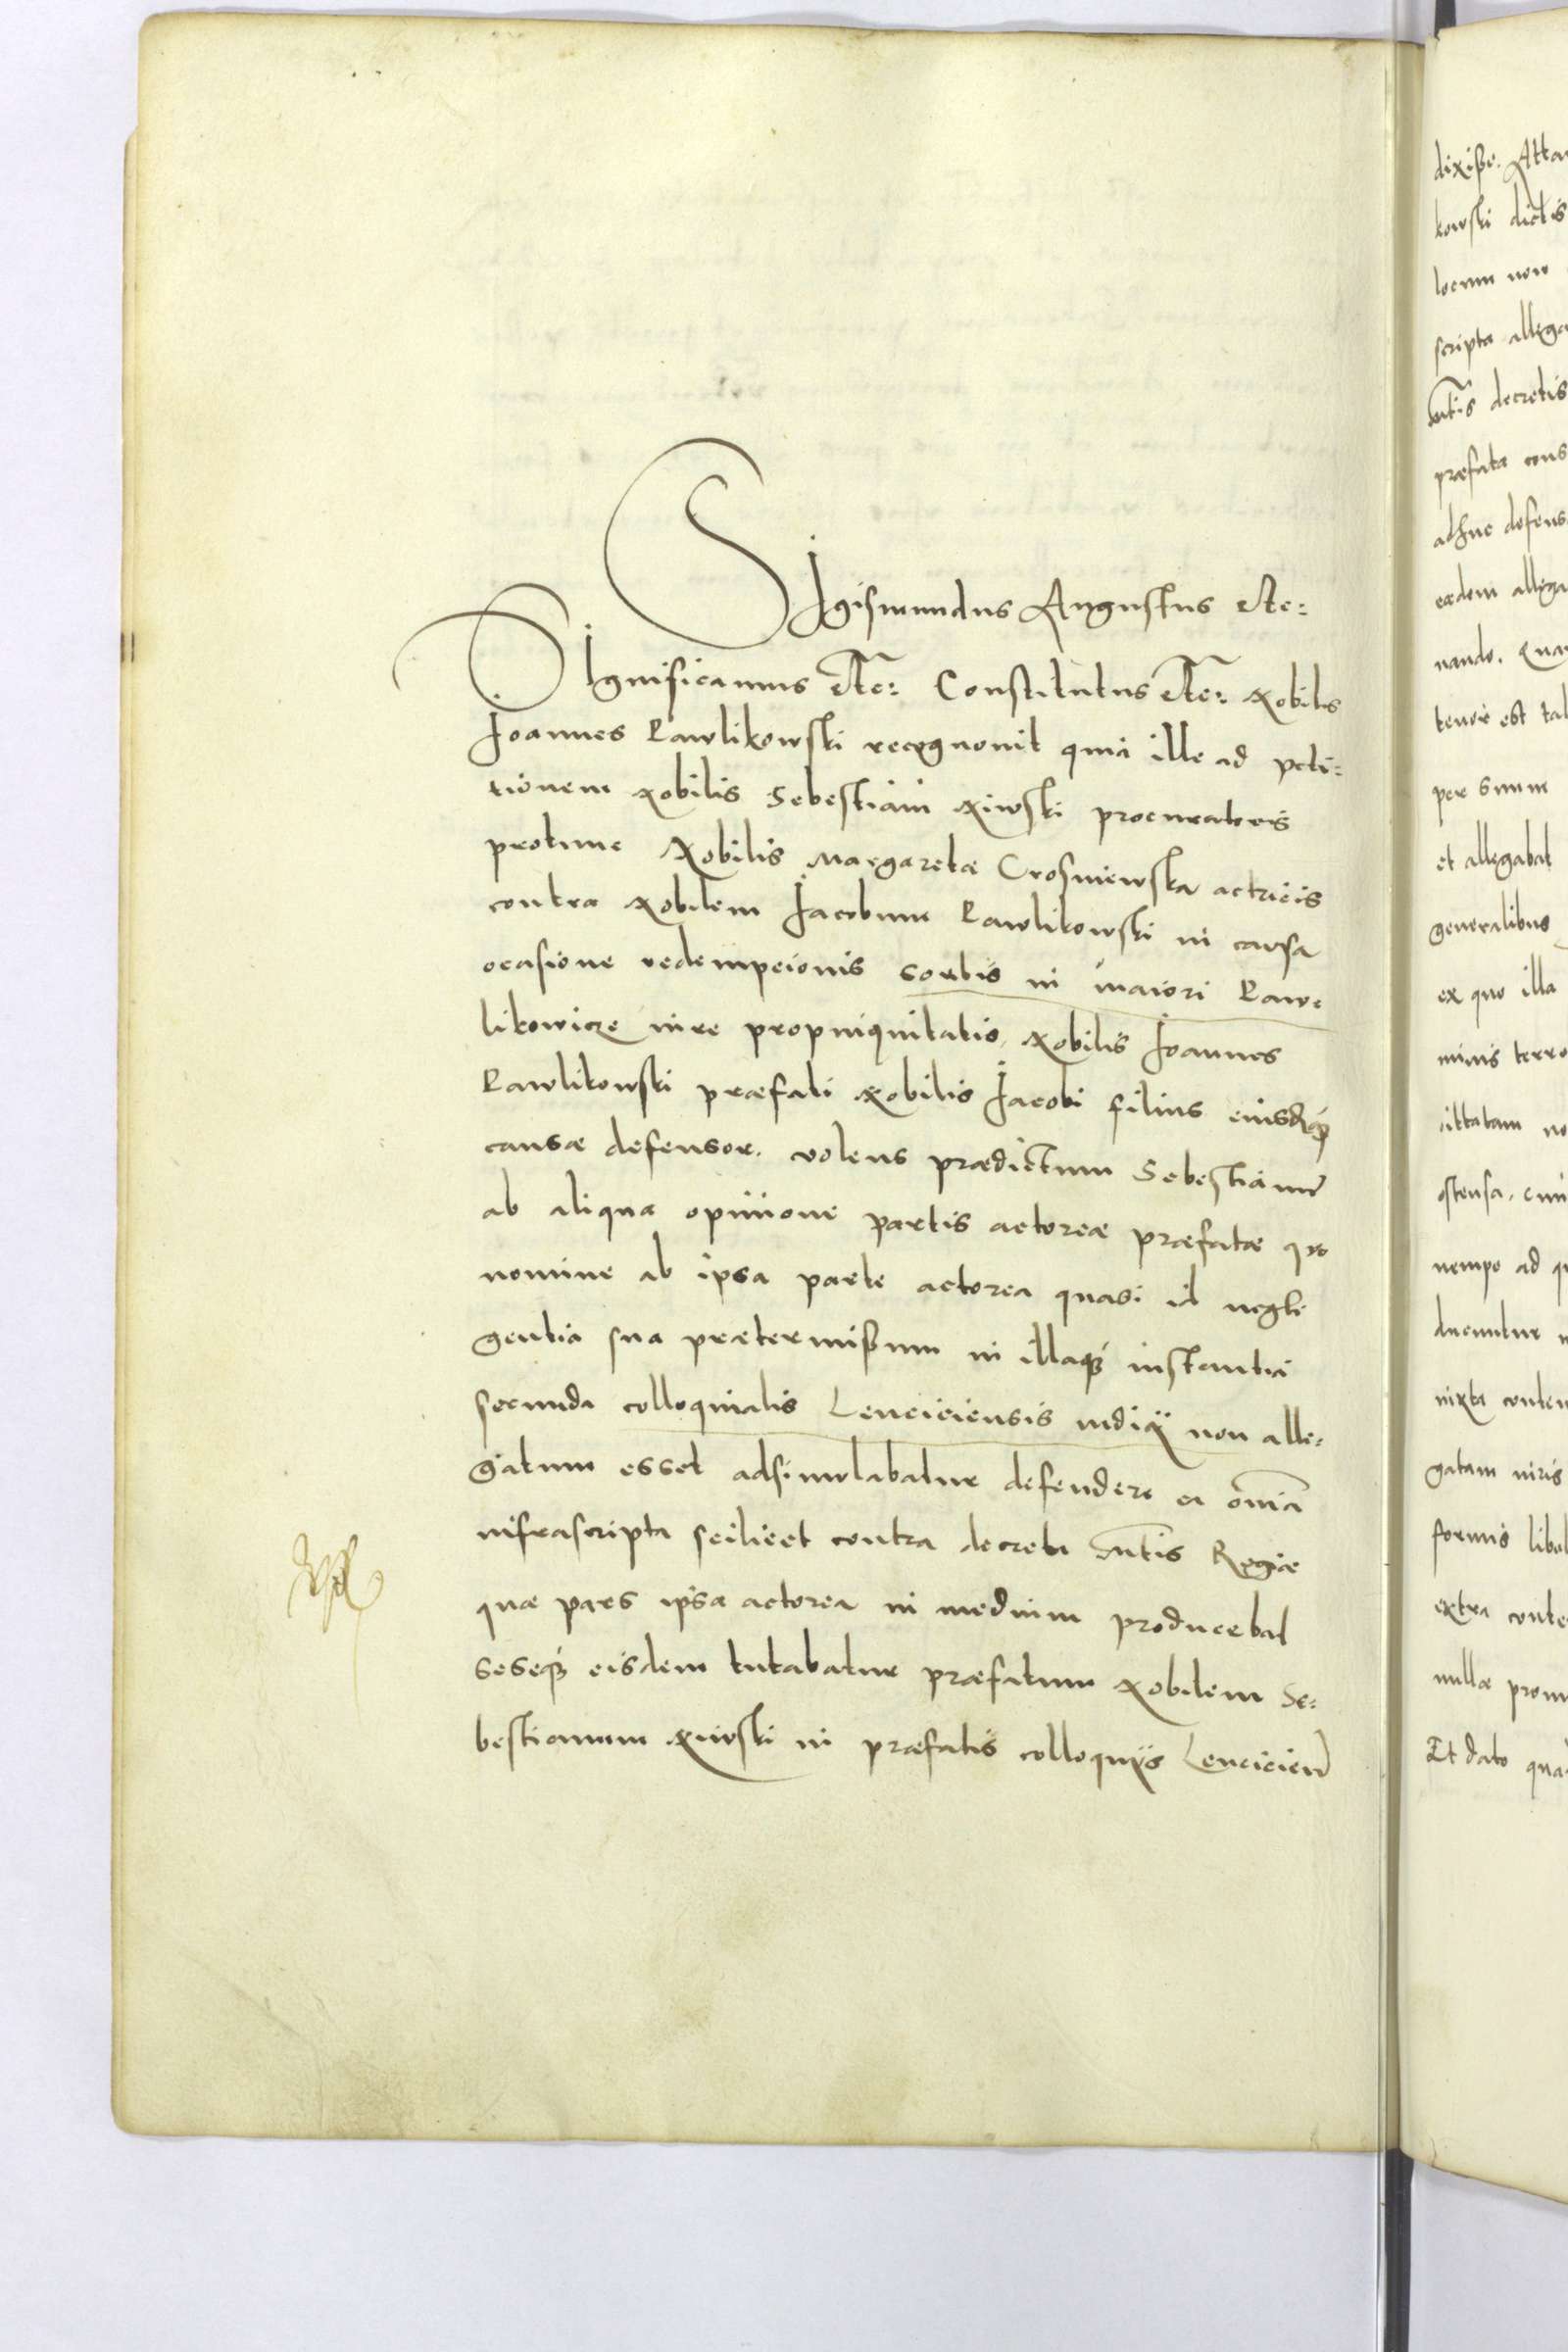 SIgismundus Augustus etc:
SIgnificamus etc: Constitutus etc: Nobilis
Joannes Pawlikowski recognovit quia ille ad peti:
tionem Nobilis Sebestiani Niwski procuratoris
protunc Nobilis Margaretæ Crosniewska actricis
contra Nobilem Jacobum Pawlikowski in causa
ocasione redempcionis sortis in maiori Paw:
likowicze iure propinquitatis, Nobilis Joannes
Pawlikowski præfati Nobilis Jacobi filius eiusdemq3
causæ defensor. volens prædictum Sebestianum
ab aliqua opinione partis actoreæ præfatæ quo
nomine ab ipsa parte actorea quasi id negli
gentia sua prætermißum in illaq3 instantia
secunda colloquialis Lenciciensis iudicÿ non alle:
gatum esset adsimulabatur defendere ea omnia
infrascripta scilicet contra decreta Mtis Regiæ
quæ pars ipsa actorea in medium producebat
seseq3 eisdem tutabatur præfatum Nobilem Se:
bestianum Niwski in præfatis colloquÿs Lencicien
dixiße. Atta
kowski dictis
locum non
scripta allega
Mtis decretis
præfata cons
adhuc defens
eædem allega
nando. Quar
tenor est tal
per suum
et allegabat
generalibus
ex quo illa
minis terre
cittatam no
ostensa. cum
nempe ad qu
ducuntur
iuxta conten
gatam iuris
formis libel
extra conte
nullæ prom
Et dato qua